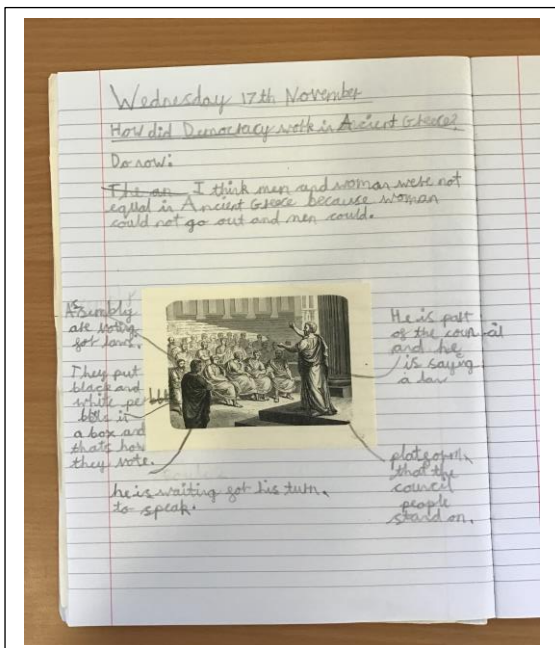 Wednesday 17th November
How did Democracy work in Ancient Greece?
Do now:
The an I think men and woman were not
equal in Ancient Greece because woman
could not go out and men could.
Assembly
are voting
for laws.
They put
black and
white pe
bbls in
a box and
thats how
they vote.
he is waiting for his turn.
to speak.
He is part
of the council
and he
is saying
a law
plateform
that the
council
people
stand on.